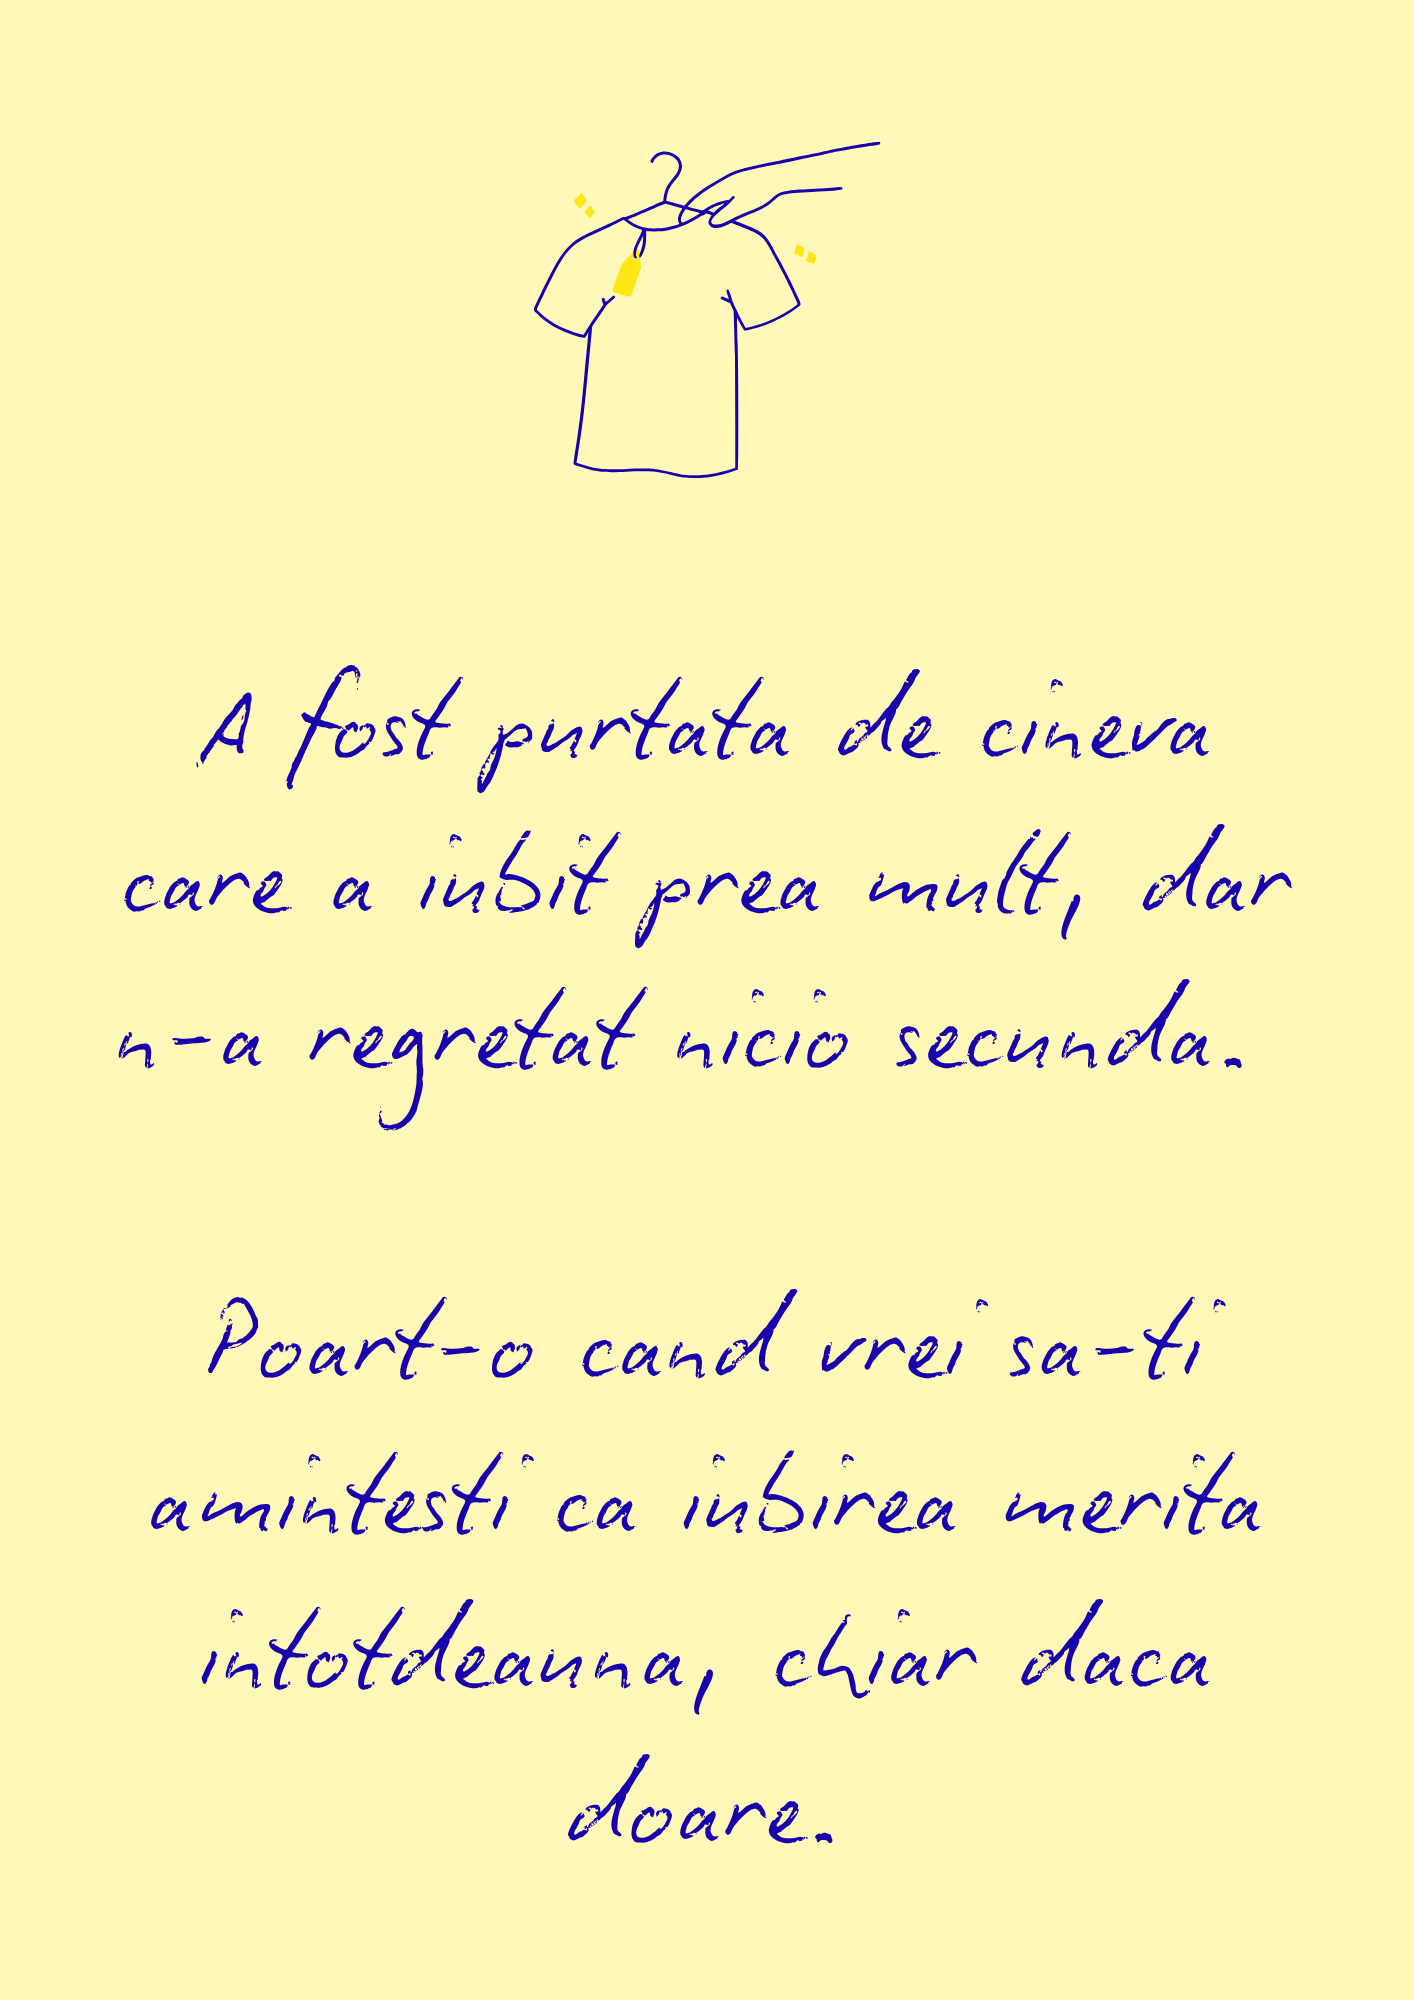 A fost purtata de cineva
care a iubit prea mult, dar
n-a regretat nicio secunda.
Poart-o cand vrei sa-ti
amintesti ca iubirea merita
intotdeauna, chiar daca
doare.